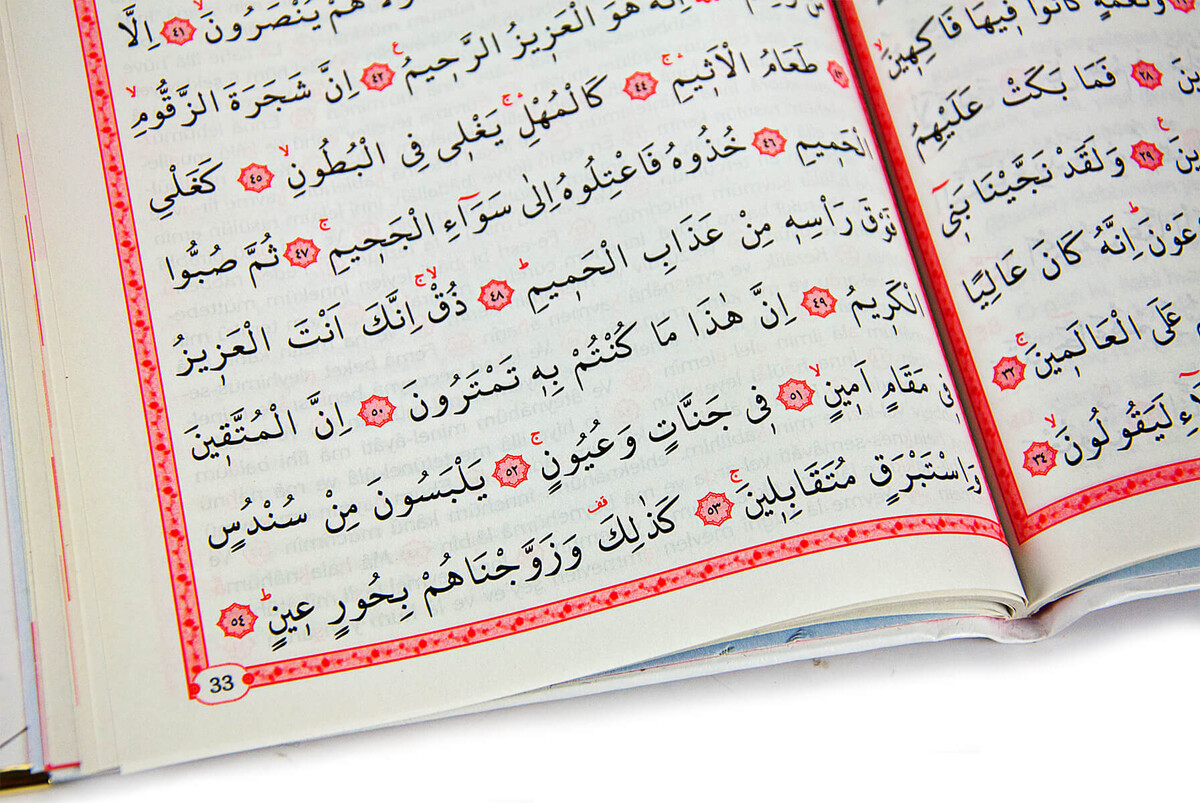 وَنَعْمَةٍ كَانُوا فِيهَا فَاكِهِينَۙ
﴿٢٨﴾ فَمَا بَكَتْ عَلَيْهِمُ
﴿٢٩﴾ وَلَقَدْ نَجَّيْنَا بَنِٓي
اِنَّهُ كَانَ عَالِيًا
عَلَى الْعَالَمِينَۚ ﴿٣٢﴾
لَيَقُولُونَۙ ﴿٣٤﴾
هُمْ يُنْصَرُونَۙ ﴿٤١﴾ اِلَّا
اِنَّهُ هُوَ الْعَزِيزُ الرَّحِيمُ ﴿٤٢﴾ اِنَّ شَجَرَةَ الزَّقُّومِۙ
﴿٤٣﴾ طَعَامُ الْاَثِيمِۚ ﴿٤٤﴾ كَالْمُهْلِۚ يَغْلِي فِي الْبُطُونِۙ ﴿٤٥﴾ كَغَلْيِ
الْحَمِيمِ ﴿٤٦﴾ خُذُوهُ فَاعْتِلُوهُ اِلٰى سَوَٓاءِ الْجَحِيمِۚ ﴿٤٧﴾ ثُمَّ صُبُّوا
فَوْقَ رَاْسِهِ مِنْ عَذَابِ الْحَمِيمِۜ ﴿٤٨﴾ ذُقْۚ اِنَّكَ اَنْتَ الْعَزِيزُ
الْكَرِيمُ ﴿٤٩﴾ اِنَّ هٰذَا مَا كُنْتُمْ بِهِ تَمْتَرُونَ ﴿٥٠﴾ اِنَّ الْمُتَّقِينَ
فِي مَقَامٍ اَمِينٍۙ ﴿٥١﴾ فِي جَنَّاتٍ وَعُيُونٍۚ ﴿٥٢﴾ يَلْبَسُونَ مِنْ سُنْدُسٍ
وَاِسْتَبْرَقٍ مُتَقَابِلِينَۚ ﴿٥٣﴾ كَذٰلِكَ وَزَوَّجْنَاهُمْ بِحُورٍ عِينٍۜ ﴿٥٤﴾
33